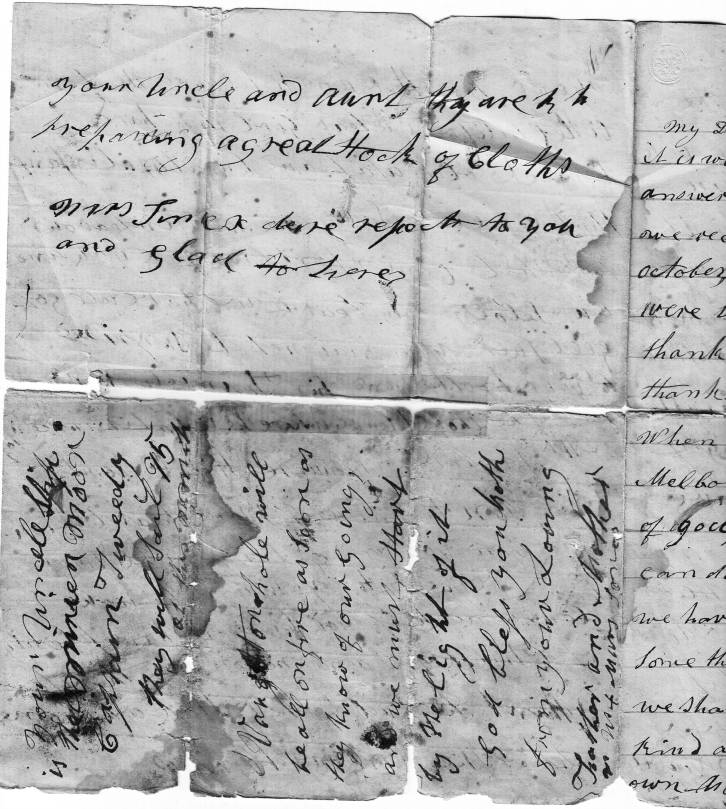 your Uncle and aunt thay are
preparing a great Stock of Cloths
Mrs desire respects to you
and glad to heare
your Uncle Ship
is the Moon
Captain Tweedy
they will Sail 25
of this month
Wange tous hole will
be all on fire as Soon as
they know of our going
as we must Start
by the light of it
God bless you both
from your Loving
Father and Mother
My D
it is w
answer
owe rec
october
were
thank
thank
When
Melbo
of good
can d
we hav
Some th
we sha
kind a
own